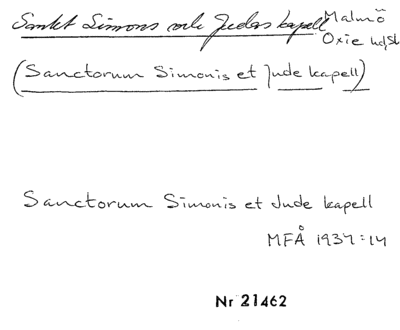 Sankt Simons och Judas kapell
Malmö
Oxie hd, Sk
(Sanctorum Simonis et Jude kapell)
Sanctorum Simonis et Jude kapell
MFÅ 1937:14
Nr 21462